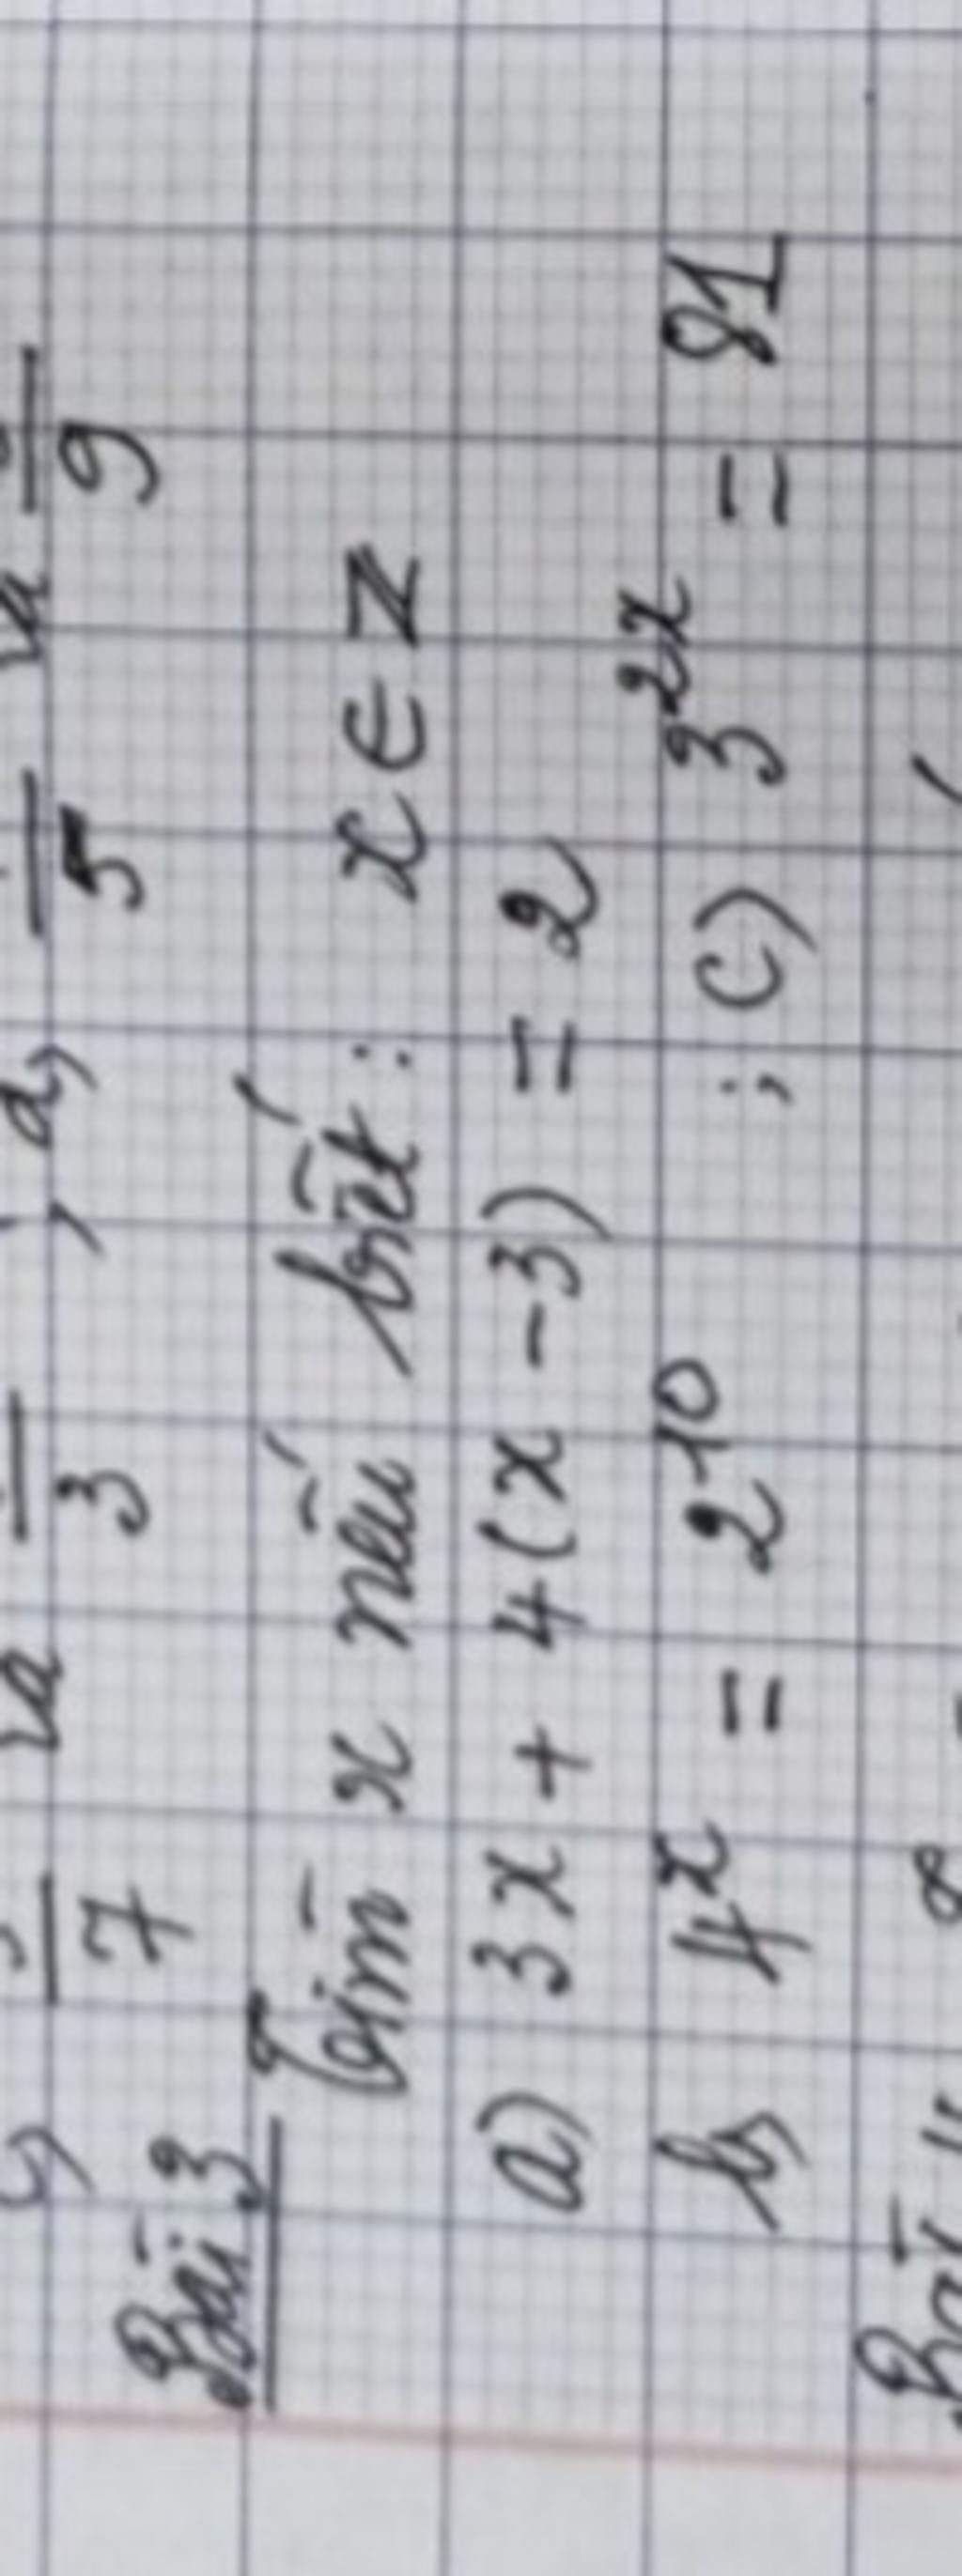 c) /7 và /3 , d, /5 và /9
Bài 3 Tìm x nếu biết: x ∈ Z
a) 3x + 4(x - 3) = 2
b, 4^x = 2^10 ; c) 3^2x = 81
Bài 4